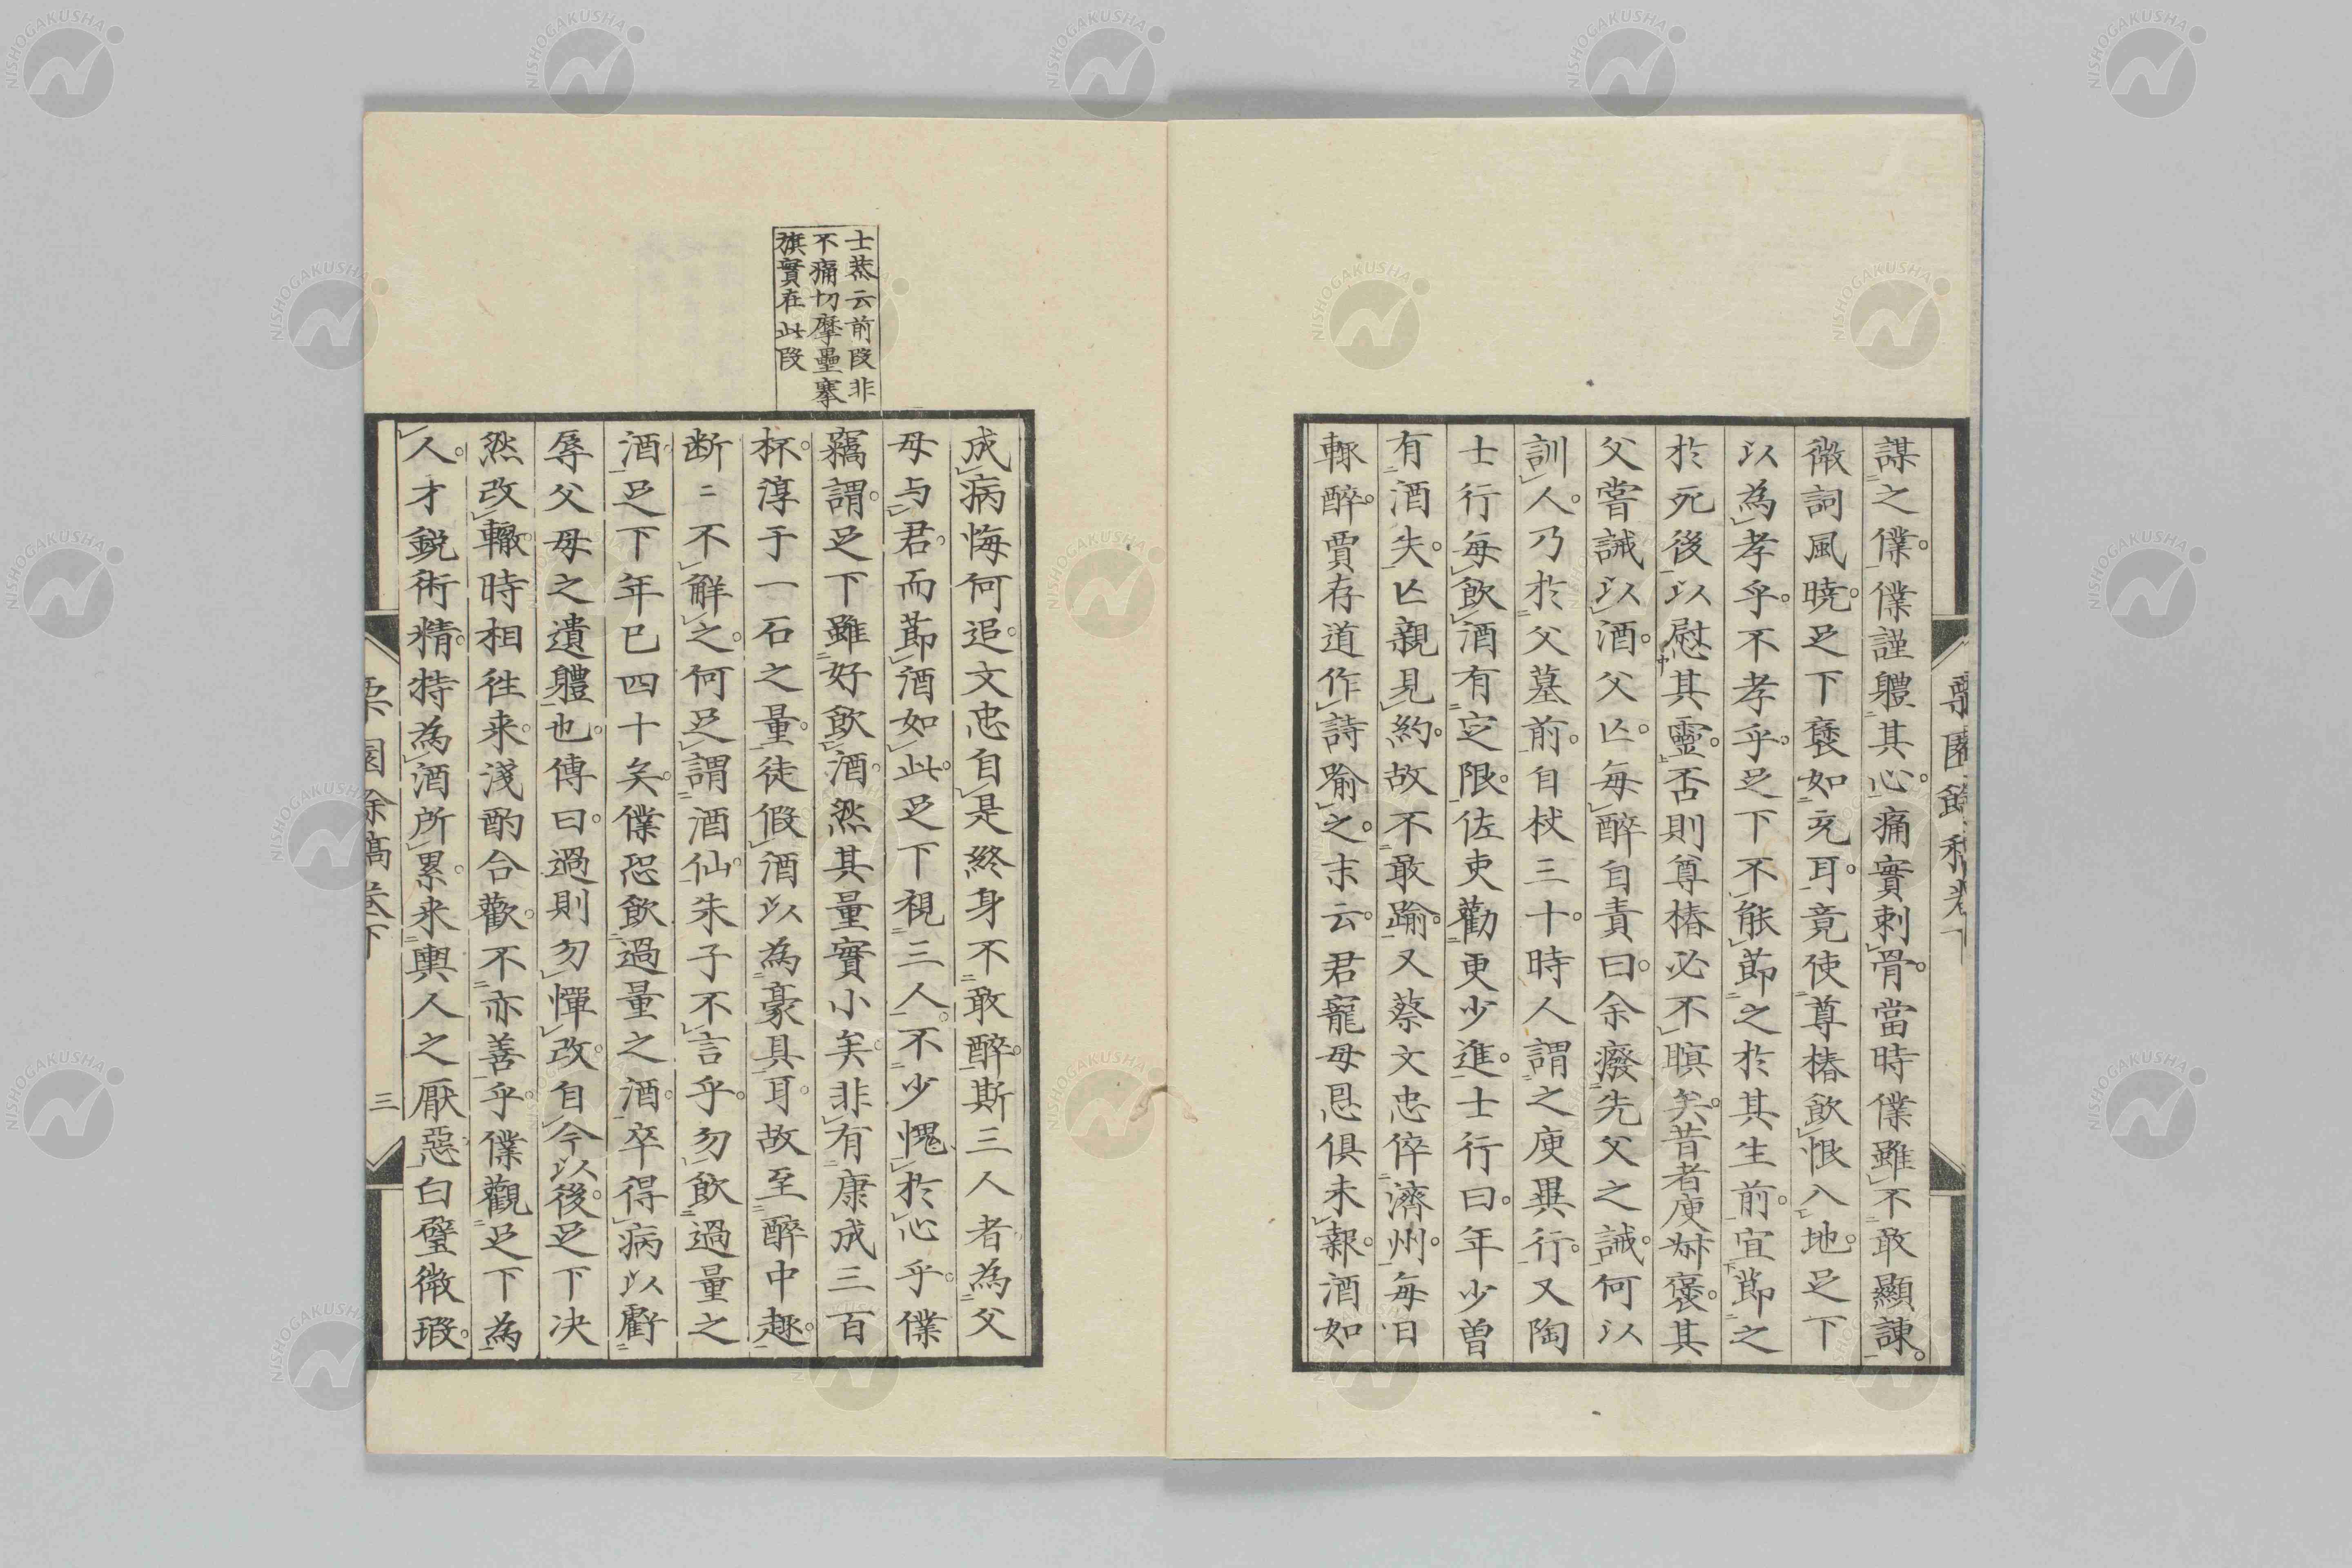 謀之僕。僕謹軆其心。痛實刺骨。當時僕雖不敢顯諫。
微詞風曉。足下褎如充耳。竟使尊椿飲恨入地。足下
以為孝乎。不孝乎。足下不能節之於其生前。宜節之
於死後以慰其靈。否則尊椿必不瞑矣。昔者庾袞其
父嘗誡以酒。父亾。每醉自責曰。余廢先父之誡。何以
訓人。乃於父墓前。自杖三十。時人謂之庾異行。又陶
士行每飲酒有定限。佐吏勸更少進。士行曰。年少曽
有酒失。亾親見約。故不敢踰。又蔡文忠倅濟州。每日
輙醉。賈存道作詩喩之。末云。君寵母恩俱未報。酒如
成病悔何追。文忠自是終身不敢醉。斯三人者為父
母与君。而節酒如此。足下視三人。不少愧於心乎。僕
竊謂。足下雖好飲酒。然其量實小矣。非有康成三百
杯。淳于一石之量。徒假酒以為豪具耳。故至醉中趣。
断二不解之。何足謂酒仙。朱子不言乎。勿飲過量之
酒。足下年已四十矣。僕恐飲過量之酒。卒得病以虧
辱父母之遺軆也。傳曰。過則勿憚改。自今以後。足下决
然改轍。時相徃来。淺酌合歡。不亦善乎。僕觀足下為
人。才鋭術精。特為酒所累。来輿人之厭惡。白璧微瑕。
士蒸云前段非
不痛切摩壘搴
旗實在此段
栗園餘稿卷下
三